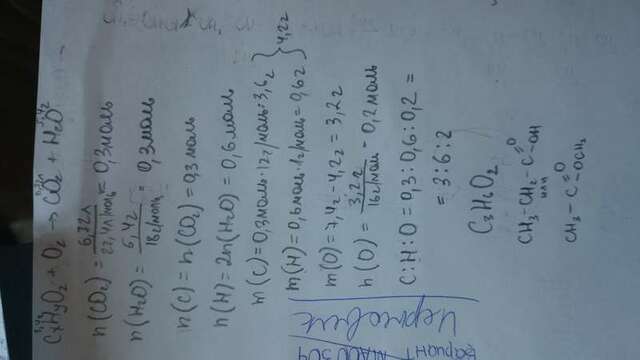 7,4г 6,72л 5,4г
CxHyO2 + O2 → CO2 + H2O
n(CO2) = 6,72л / 22,4л/моль = 0,3моль
n(H2O) = 5,4г / 18г/моль = 0,3моль
n(C) = n(CO2) = 0,3моль
n(H) = 2n(H2O) = 0,6моль
m(C) = 0,3моль·12г/моль = 3,6г } 4,2г
m(H) = 0,6моль·1г/моль = 0,6г
m(O) = 7,4г - 4,2г = 3,2г
n(O) = 3,2г / 16г/моль = 0,2моль
C:H:O = 0,3:0,6:0,2 =
= 3:6:2
C3H6O2
CH3-CH2-C=O
-OH
или
CH3-C=O
-OCH3
Черновик
Вариант